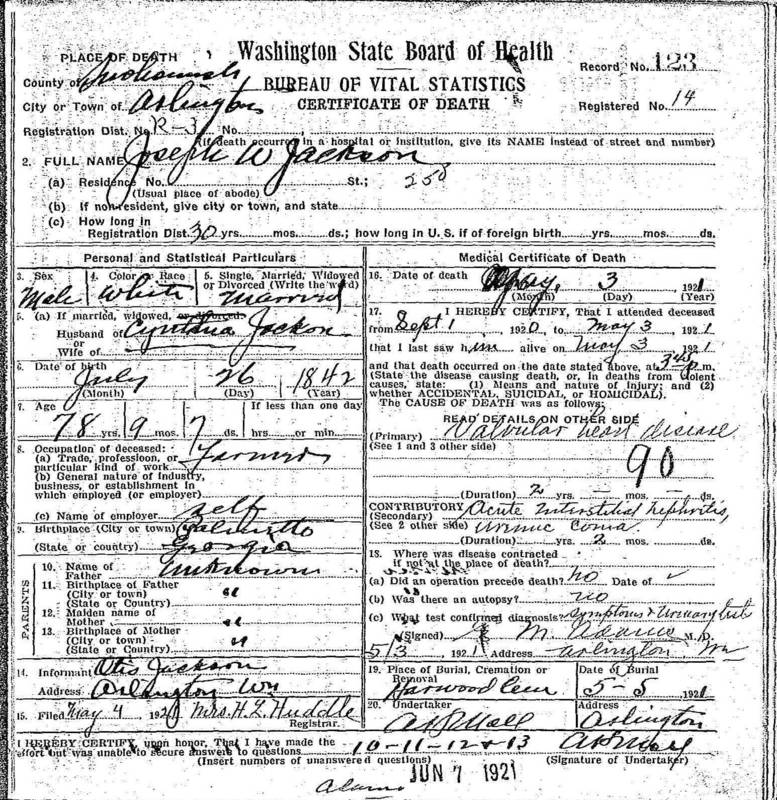 Washington State Board of Health
PLACE OF DEATH
Record No. 123
County of Snohomish
BUREAU OF VITAL STATISTICS
City or Town of Arlington
CERTIFICATE OF DEATH
Registered No. 14
Registration Dist. No. R-3 No.
(If death occurred in a hospital or institution, give its NAME instead of street and number)
2. FULL NAME Joseph W Jackson
(a) Residence No. St.; 258
(Usual place of abode)
(b) If non-resident, give city or town, and state
(c) How long in
Registration Dist. 30 yrs. mos. ds.; how long in U. S. if of foreign birth yrs. mos. ds.
Personal and Statistical Particulars
3. Sex 4. Color or Race 5. Single, Married, Widowed
or Divorced (Write the word)
Male White Married
5. (a) If married, widowed, or divorced:
Husband of
or
Wife of
6. Date of birth
July 26 1842
(Month) (Day) (Year)
7. Age If less than one day
78 yrs. 9 mos. 7 ds. hrs. or min.
8. Occupation of deceased:
(a) Trade, profession, or
particular kind of work Farmer
(b) General nature of industry,
business, or establishment in
which employed (or employer)
(c) Name of employer self
9. Birthplace (City or town) Palmetto
(State or country) Georgia
PARENTS
10. Name of
Father Unknown
11. Birthplace of Father
(City or town) "
(State or Country)
12. Maiden name of
Mother "
13. Birthplace of Mother
(City or town) "
(State or Country)
14. Informant Otis Jackson
Address Arlington Wn
15. Filed May 4 1921 Mrs. H. L. Huddle
Registrar.
Medical Certificate of Death
16. Date of death May 3 1921
(Month) (Day) (Year)
17. I HEREBY CERTIFY, That I attended deceased
from Sept 1, 1920, to May 3 1921
that I last saw him alive on May 3 1921
and that death occurred on the date stated above, at 3 45 p.m.
(State the disease causing death, or, in deaths from violent
causes, state: (1) Means and nature of injury; and (2)
whether ACCIDENTAL, SUICIDAL, or HOMICIDAL).
The CAUSE OF DEATH was as follows:
READ DETAILS ON OTHER SIDE
(Primary) Valvular heart disease
(See 1 and 3 other side)
90
(Duration) 2 yrs. – mos. – ds.
CONTRIBUTORY Acute Interstitial Nephritis,
(Secondary)
(See 2 other side) Uremic Coma.
(Duration) yrs. 2 mos. ds.
18. Where was disease contracted
if not at the place of death?
(a) Did an operation precede death? no Date of
(b) Was there an autopsy? no
(c) What test confirmed diagnosis? Symptoms & Urinary test
(Signed) M. Adams M. D.
5/3 1921 Address Arlington Wn
19. Place of Burial, Cremation or Date of Burial
Removal
Harwood Cem 5-5 1921
20. Undertaker Address
Arlington
I HEREBY CERTIFY, upon honor, That I have made the
effort but was unable to secure answers to questions 10-11-12 & 13
(Insert numbers of unanswered questions) (Signature of Undertaker)
JUN 7 1921